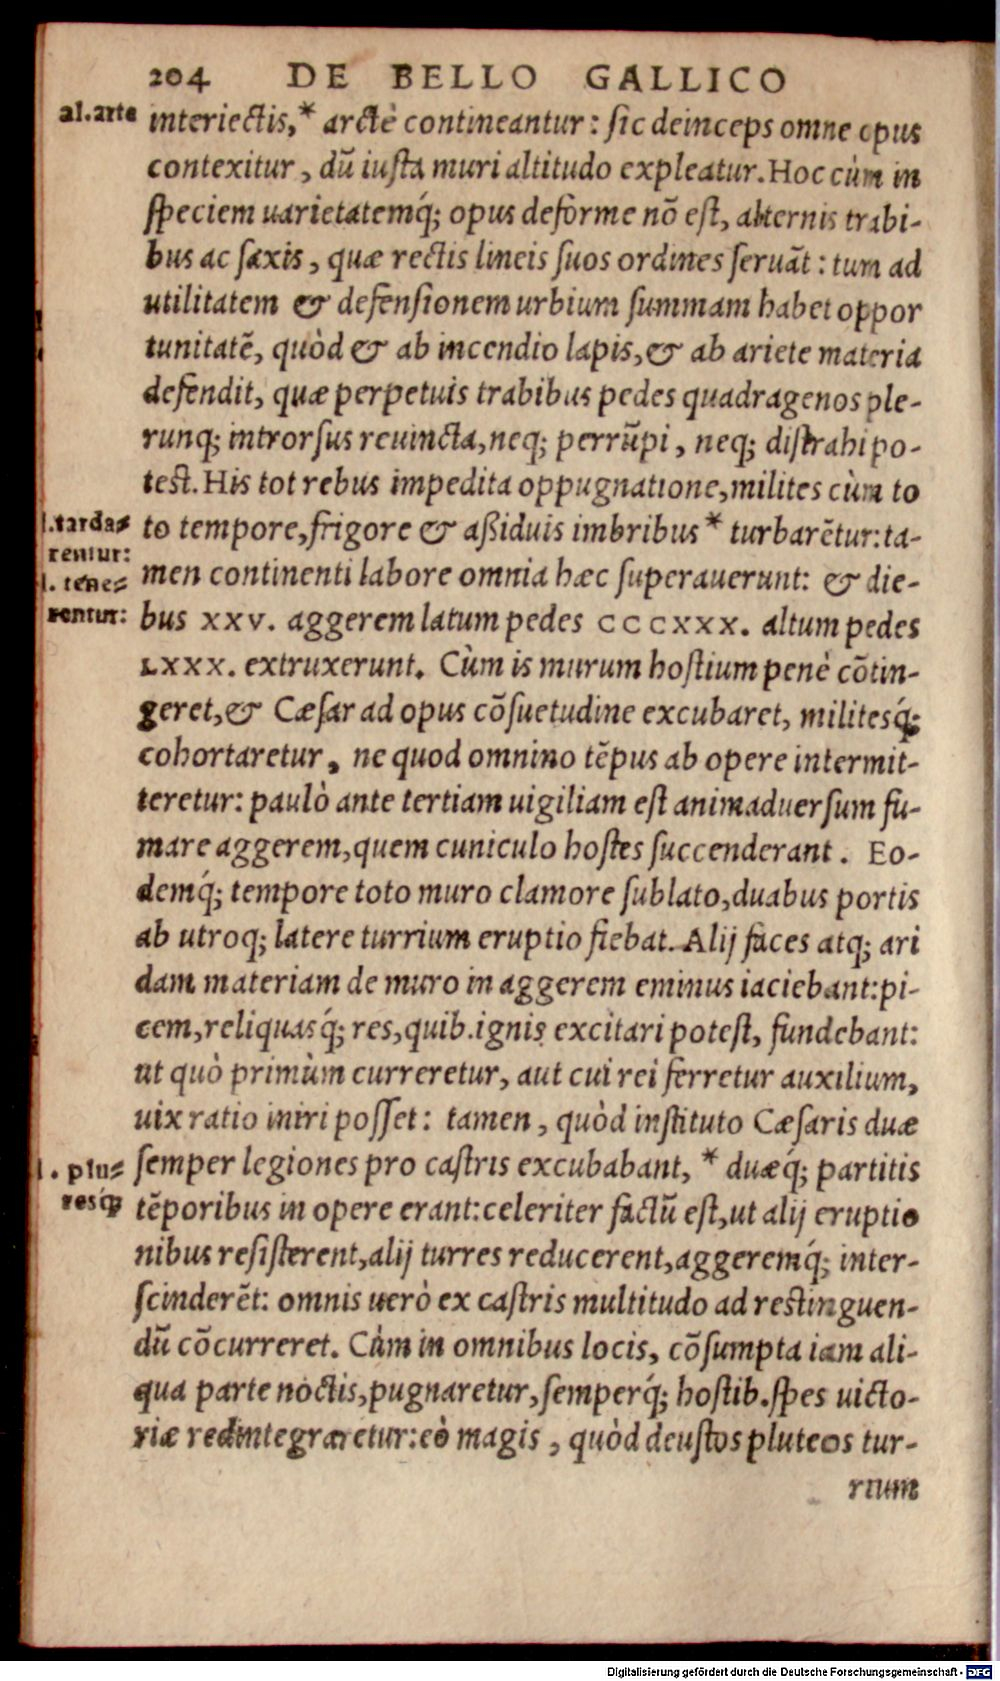 204 DE BELLO GALLICO
al.arte
interiectis,* arctè contineantur: sic deinceps omne opus
contexitur, dũ iusta muri altitudo expleatur. Hoc cùm in
speciem uarietatemq́; opus deforme nõ est, alternis trabi-
bus ac saxis, quæ rectis lineis suos ordines seruãt: tum ad
utilitatem & defensionem urbium summam habet oppor
tunitatẽ, quòd & ab incendio lapis, & ab ariete materia
defendit, quæ perpetuis trabibus pedes quadragenos ple-
runq; introrsus reuincta, neq; perrũpi, neq; distrahi po-
test. His tot rebus impedita oppugnatione, milites cùm to
l.tarda=
rentur:
l. tene=
rentur:
to tempore, frigore & aßiduis imbribus * turbarẽtur: ta-
men continenti labore omnia hæc superauerunt: & die-
bus XXV. aggerem latum pedes CCCXXX. altum pedes
LXXX. extruxerunt. Cùm is murum hostium penè cõtin-
geret, & Cæsar ad opus cõsuetudine excubaret, militesq́;
cohortaretur, ne quod omnino tẽpus ab opere intermit-
teretur: paulò ante tertiam uigiliam est animaduersum fu-
mare aggerem, quem cuniculo hostes succenderant. Eo-
demq́; tempore toto muro clamore sublato, duabus portis
ab utroq; latere turrium eruptio fiebat. Alij faces atq; ari
dam materiam de muro in aggerem eminus iaciebant: pi-
cem, reliquasq́; res, quib. ignis excitari potest, fundebant:
ut quò primùm curreretur, aut cui rei ferretur auxilium,
uix ratio iniri posset: tamen, quòd instituto Cæsaris duæ
l. plu=
resq́;
semper legiones pro castris excubabant, * duæq́; partitis
tẽporibus in opere erant: celeriter factũ est, ut alij eruptio
nibus resisterent, alij turres reducerent, aggeremq́; inter-
scinderẽt: omnis uerò ex castris multitudo ad restinguen-
dũ cõcurreret. Cùm in omnibus locis, cõsumpta iam ali-
qua parte noctis, pugnaretur, semperq́; hostib. spes uicto-
riæ redintegraretur: eò magis, quòd deustos pluteos tur-
rium
Digitalisierung gefördert durch die Deutsche Forschungsgemeinschaft - DFG